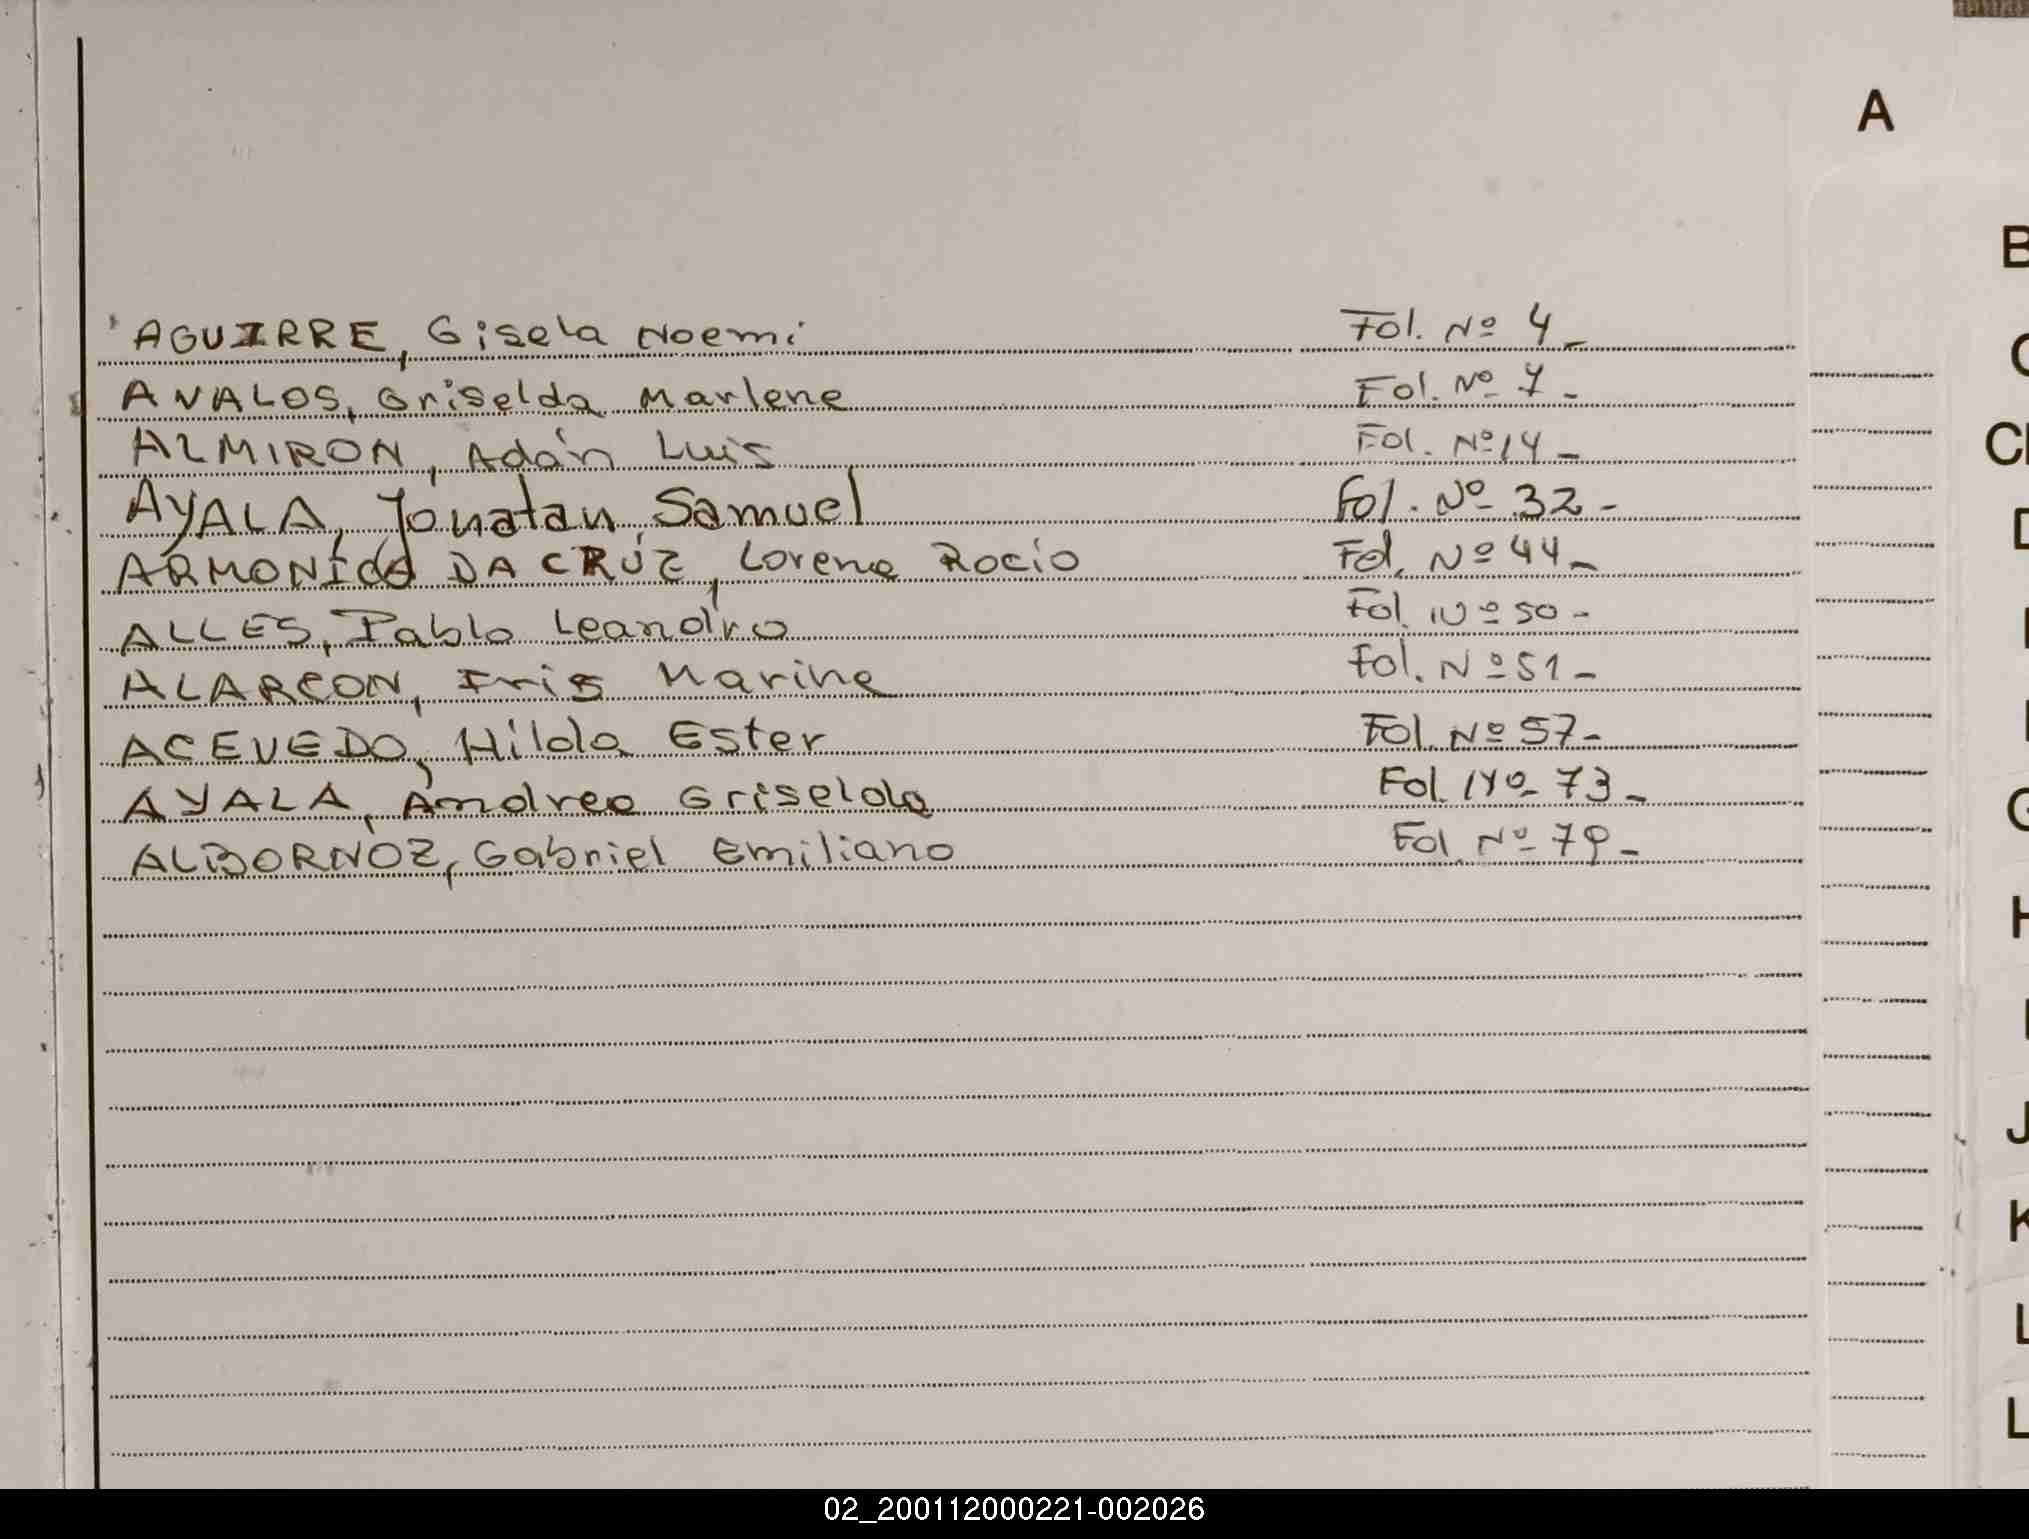 A
AGUIRRE, Gisela Noemi Fol. Nº 4_
AVALOS, Griselda Marlene Fol. Nº 7_
ALMIRON, Adán Luis Fol. Nº 14_
AYALA, Jonatan Samuel Fol. Nº 32-
ARMONICO DA CRUZ, Lorena Rocio Fol. Nº 44_
ALLES, Pablo Leandro Fol. Nº 50-
ALARCON, Iris Marina Fol. Nº 51_
ACEVEDO, Hilda Ester Fol. Nº 57_
AYALA, Andrea Griselda Fol. Nº 73_
ALBORNOZ, Gabriel Emiliano Fol. Nº 79_
B
C
D
G
H
J
K
L
02_200112000221-002026